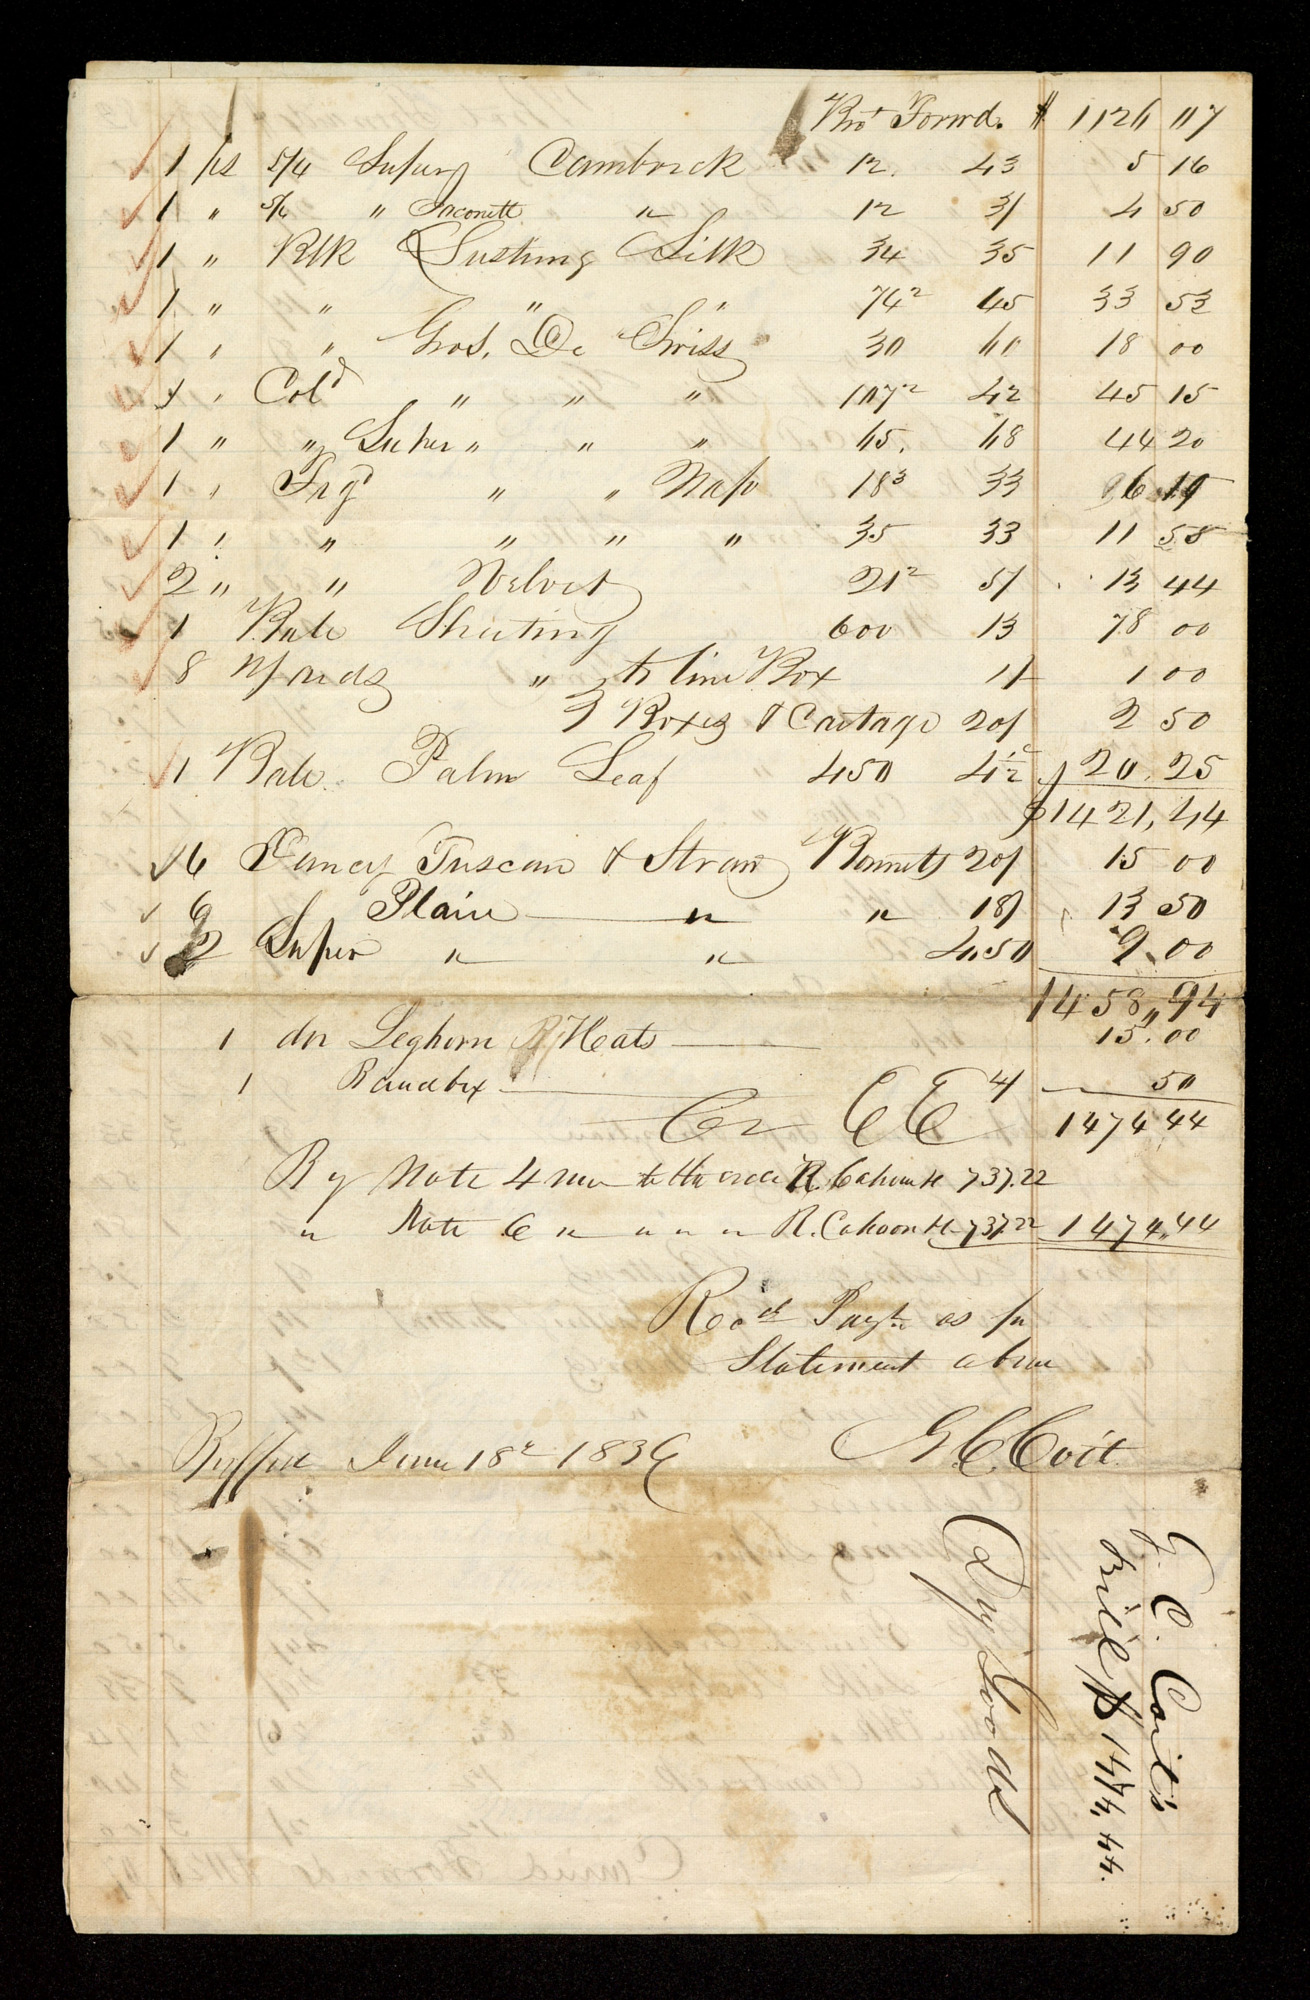 Bro't Forwd. $ 1126 07
1 ps 5/4 Super Cambrick 12. 43 5 16
1 " 5/4 " Jaconett " 12 3/ 4 50
1 " Blk Lustring Silk 34 35 11 90
1 " " " " 74² 45 33 53
1 " " Gros. De Swiss 30 60 18 00
1 " Col'd " " " 107² 42 45 15
1 " " Super " " " 65. 68 44 20
1 " Fig'd " " Nap 18³ 33 6 19
1 " " " " " 35 33 11 55
2 " " Velvet 21² 5/ 13 44
1 Bale Sheeting 600 13 78 00
8 Yards " to line Box 1/ 1 00
3 Boxes & Cartage 20/ 2 50
1 Bale Palm Leaf 450 4½ 20.25
$1421,44
6 Fancy Tuscan & Straw Bonnets 20/ 15 00
6 Plain " " 18/ 13 50
2 Super " " 4.50 9.00
1458,,94
1 doz Leghorn Heats 15.00
1 Bandbox 50
Cr E E 4 1474 44
By Note 4 mo to the order R. Cahoon 737.22
" Note 6 " " " " R. Cahoon 737.22 1474,,44
Rec'd Payt. as pr
Statement above
Buffalo June 18th 1836 G C Coit
G. C. Coit's
Bill $1474,44.
Dry Goods